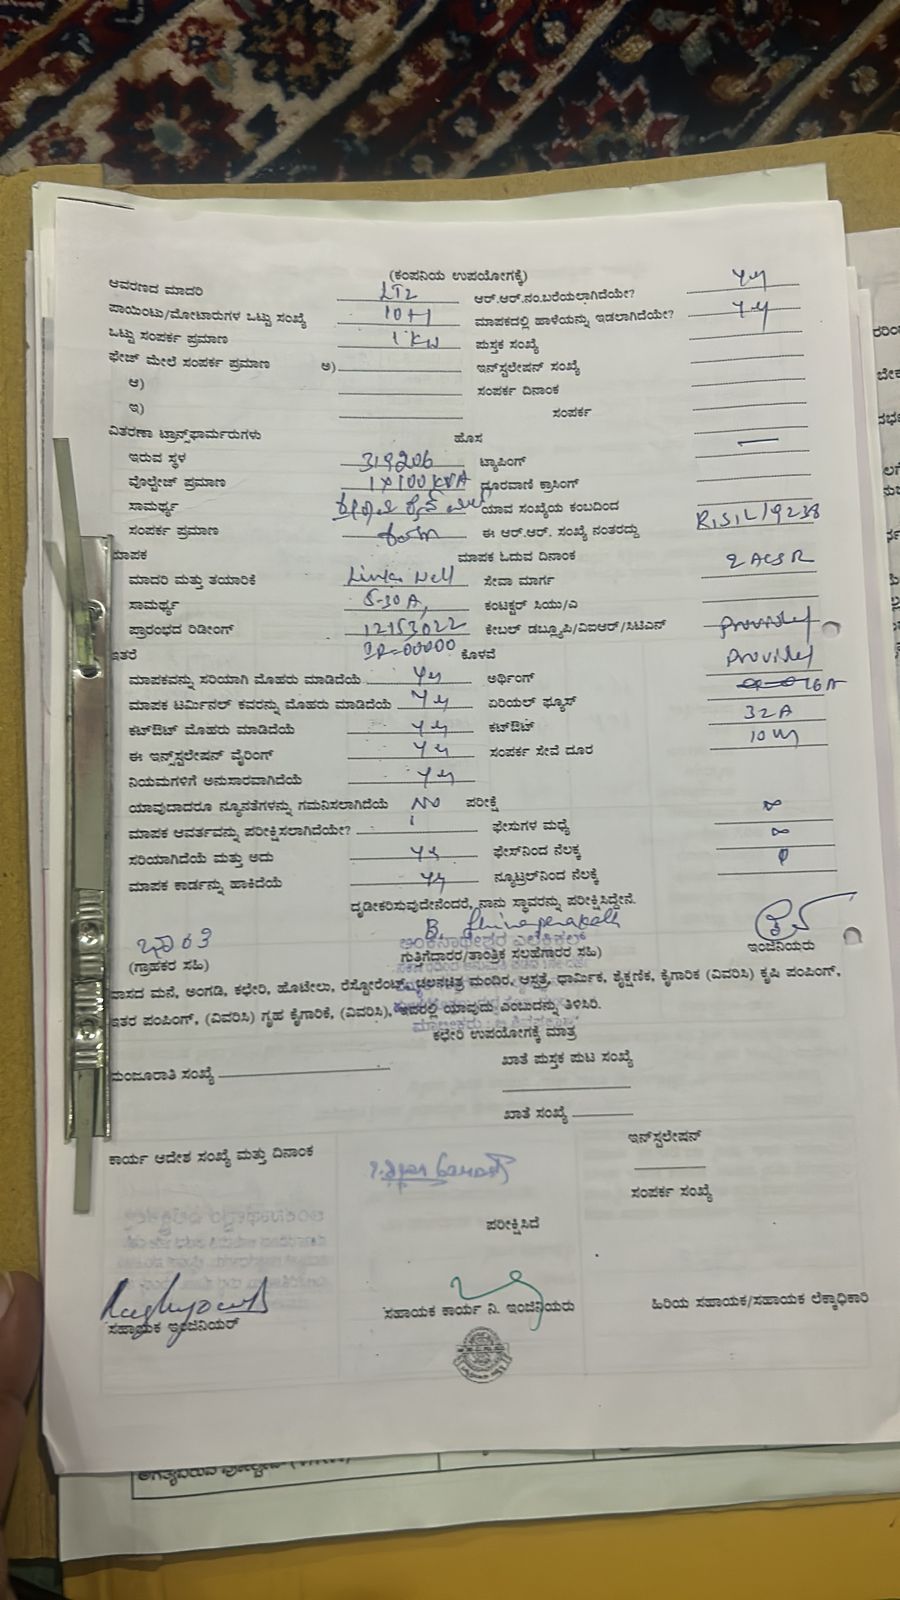 (ಕಂಪನಿಯ ಉಪಯೋಗಕ್ಕೆ)
ಆವರಣದ ಮಾದರಿ LT2 ಆರ್.ಆರ್.ನಂ.ಬರೆಯಲಾಗಿದೆಯೇ? Yes
ಪಾಯಿಂಟು/ಮೋಟಾರುಗಳ ಒಟ್ಟು ಸಂಖ್ಯೆ 10+1 ಮಾಪಕದಲ್ಲಿ ಹಾಳೆಯನ್ನು ಇಡಲಾಗಿದೆಯೇ? Yes
ಒಟ್ಟು ಸಂಪರ್ಕ ಪ್ರಮಾಣ 1 KW ಪುಸ್ತಕ ಸಂಖ್ಯೆ
ಫೇಜ್ ಮೇಲೆ ಸಂಪರ್ಕ ಪ್ರಮಾಣ ಅ) ಇನ್‌ಸ್ಟಲೇಷನ್ ಸಂಖ್ಯೆ
ಆ) ಸಂಪರ್ಕ ದಿನಾಂಕ
ಇ) ಸಂಪರ್ಕ
ವಿತರಣಾ ಟ್ರಾನ್ಸ್‌ಫಾರ್ಮರುಗಳು ಹೊಸ
ಇರುವ ಸ್ಥಳ 319206 ಟ್ಯಾಪಿಂಗ್
ವೊಲ್ಟೇಜ್ ಪ್ರಮಾಣ 1X100 KVA ದೂರವಾಣಿ ಕ್ರಾಸಿಂಗ್
ಸಾಮರ್ಥ್ಯ ಯಾವ ಸಂಖ್ಯೆಯ ಕಂಬದಿಂದ
ಸಂಪರ್ಕ ಪ್ರಮಾಣ ಈ ಆರ್.ಆರ್. ಸಂಖ್ಯೆ ನಂತರದ್ದು
ಮಾಪಕ ಮಾಪಕ ಓದುವ ದಿನಾಂಕ
ಮಾದರಿ ಮತ್ತು ತಯಾರಿಕೆ ಸೇವಾ ಮಾರ್ಗ 2 ACSR
ಸಾಮರ್ಥ್ಯ 5-30A, ಕಂಟಕ್ಟರ್ ಸಿಯು/ಎ
ಪ್ರಾರಂಭದ ರಿಡೀಂಗ್ 12153022 ಕೇಬಲ್ ಡಬ್ಲ್ಯೂಪಿ/ವಿಐಆರ್/ಸಿಟಿಎನ್ Provided
ಇತರೆ IR-00000 ಕೊಳವೆ
ಮಾಪಕವನ್ನು ಸರಿಯಾಗಿ ಮೊಹರು ಮಾಡಿದೆಯೆ Yes ಅರ್ಥಿಂಗ್ Provided
ಮಾಪಕ ಟರ್ಮಿನಲ್ ಕವರನ್ನು ಮೊಹರು ಮಾಡಿದೆಯೆ Yes ಏರಿಯಲ್ ಫ್ಯೂಸ್ 16A
ಕಟ್‌ಔಟ್ ಮೊಹರು ಮಾಡಿದೆಯೆ Yes ಕಟ್‌ಔಟ್ 32A
ಈ ಇನ್ಸ್‌ಸ್ಟಲೇಷನ್ ವೈರಿಂಗ್ Yes ಸಂಪರ್ಕ ಸೇವೆ ದೂರ 10 m
ನಿಯಮಗಳಿಗೆ ಅನುಸಾರವಾಗಿದೆಯೆ Yes
ಯಾವುದಾದರೂ ನ್ಯೂನತೆಗಳನ್ನು ಗಮನಿಸಲಾಗಿದೆಯೆ No ಪರೀಕ್ಷೆ
ಮಾಪಕ ಆವರ್ತವನ್ನು ಪರೀಕ್ಷಿಸಲಾಗಿದೆಯೇ? ಫೇಸುಗಳ ಮಧ್ಯೆ ∞
ಸರಿಯಾಗಿದೆಯೆ ಮತ್ತು ಅದು Yes ಫೇಸ್‌ನಿಂದ ನೆಲಕ್ಕೆ ∞
ಮಾಪಕ ಕಾರ್ಡನ್ನು ಹಾಕಿದೆಯೆ Yes ನ್ಯೂಟ್ರಲ್‌ನಿಂದ ನೆಲಕ್ಕೆ
ದೃಡೀಕರಿಸುವುದೇನೆಂದರೆ, ನಾನು ಸ್ಥಾವರನ್ನು ಪರೀಕ್ಷಿಸಿದ್ದೇನೆ.
ಭಾರತಿ
(ಗ್ರಾಹಕರ ಸಹಿ) ಗುತ್ತಿಗೆದಾರರ/ತಾಂತ್ರಿಕ ಸಲಹೆಗಾರರ ಸಹಿ) ಇಂಜಿನಿಯರು
ವಾಸದ ಮನೆ, ಅಂಗಡಿ, ಕಛೇರಿ, ಹೊಟೇಲು, ರೆಸ್ಟೋರೆಂಟ್, ಚಲನಚಿತ್ರ ಮಂದಿರ, ಆಸ್ಪತ್ರೆ, ಧಾರ್ಮಿಕ, ಶೈಕ್ಷಣಿಕ, ಕೈಗಾರಿಕ (ವಿವರಿಸಿ) ಕೃಷಿ ಪಂಪಿಂಗ್,
ಇತರ ಪಂಪಿಂಗ್, (ವಿವರಿಸಿ) ಗೃಹ ಕೈಗಾರಿಕೆ, (ವಿವರಿಸಿ), ಇದರಲ್ಲಿ ಯಾವುದು ಎಂಬುದನ್ನು ತಿಳಿಸಿರಿ.
ಕಛೇರಿ ಉಪಯೋಗಕ್ಕೆ ಮಾತ್ರ
ಮಂಜೂರಾತಿ ಸಂಖ್ಯೆ ಖಾತೆ ಪುಸ್ತಕ ಪುಟ ಸಂಖ್ಯೆ
ಖಾತೆ ಸಂಖ್ಯೆ
ಕಾರ್ಯ ಆದೇಶ ಸಂಖ್ಯೆ ಮತ್ತು ದಿನಾಂಕ ಇನ್‌ಸ್ಟಲೇಷನ್
ಸಂಪರ್ಕ ಸಂಖ್ಯೆ
ಪರೀಕ್ಷಿಸಿದೆ
ಸಹಾಯಕ ಇಂಜಿನಿಯರ್ ಸಹಾಯಕ ಕಾರ್ಯ ನಿ. ಇಂಜಿನಿಯರು ಹಿರಿಯ ಸಹಾಯಕ/ಸಹಾಯಕ ಲೆಕ್ಕಾಧಿಕಾರಿ